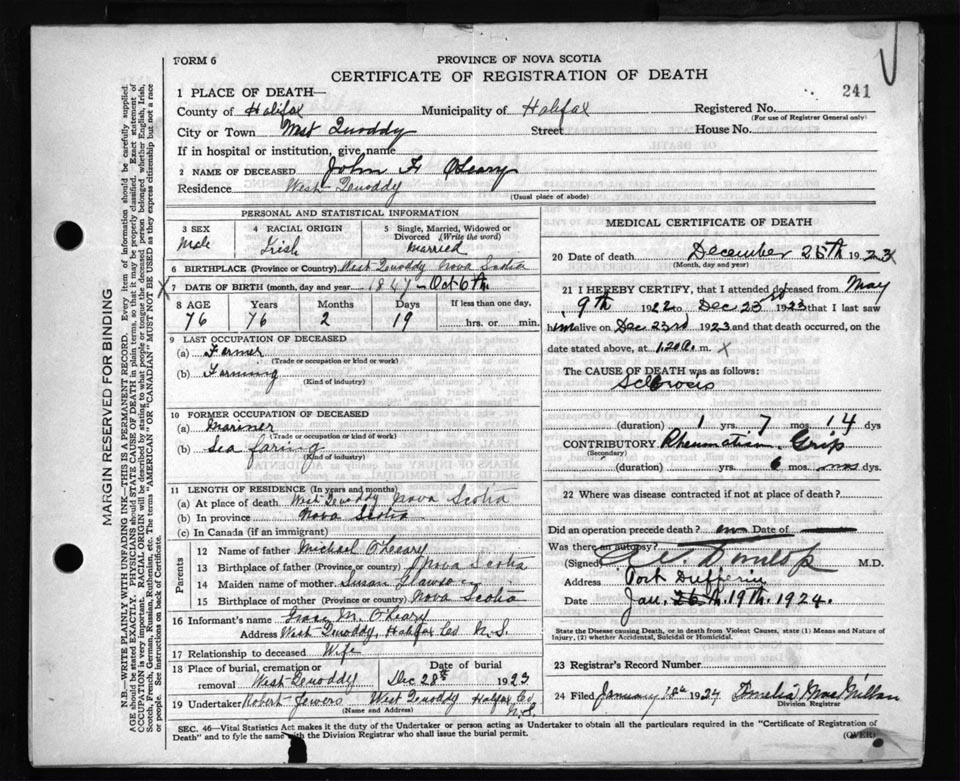 FORM 6
PROVINCE OF NOVA SCOTIA
CERTIFICATE OF REGISTRATION OF DEATH
241
1 PLACE OF DEATH—
County of Halifax Municipality of Halifax Registered No.
(For use of Registrar General only)
City or Town West Quoddy Street House No.
If in hospital or institution, give name
2 NAME OF DECEASED John F O'Leary
Residence West Quoddy
(Usual place of abode)
PERSONAL AND STATISTICAL INFORMATION
3 SEX Male
4 RACIAL ORIGIN Irish
5 Single, Married, Widowed or Divorced (Write the word) Married
6 BIRTHPLACE (Province or Country) West Quoddy Nova Scotia
X 7 DATE OF BIRTH (month, day and year) 1847 Oct 6th
8 AGE Years Months Days If less than one day,
76 76 2 19 hrs. or min.
9 LAST OCCUPATION OF DECEASED
(a) Farmer
(Trade or occupation or kind or work)
(b) Farming
(Kind of industry)
10 FORMER OCCUPATION OF DECEASED
(a) Mariner
(Trade or occupation or kind or work)
(b) Sea faring
(Kind of industry)
11 LENGTH OF RESIDENCE (In years and months)
(a) At place of death West Quoddy Nova Scotia
(b) In province Nova Scotia
(c) In Canada (if an immigrant)
Parents
12 Name of father Michael O'Leary
13 Birthplace of father (Province or country) Nova Scotia
14 Maiden name of mother Susan
15 Birthplace of mother (Province or country) Nova Scotia
16 Informant's name Grace M. O'Leary
Address West Quoddy, Halifax Co N.S.
17 Relationship to deceased Wife
18 Place of burial, cremation or removal West Quoddy Date of burial Dec 28th 1923
19 Undertaker Robert West Quoddy Halifax Co N.S.
(Name and Address)
MEDICAL CERTIFICATE OF DEATH
20 Date of death December 25th 1923
(Month, day and year)
21 I HEREBY CERTIFY, that I attended deceased from May
9th 1922 to Dec 23rd 1923 that I last saw
him alive on Dec 23rd 1923 and that death occurred, on the
date stated above, at 1.20 a. m. X
The CAUSE OF DEATH was as follows:
Sclerosis
(duration) 1 yrs. 7 mos. 14 dys
CONTRIBUTORY Rheumatism. Grip
(Secondary)
(duration) yrs. 6 mos. dys.
22 Where was disease contracted if not at place of death?
Did an operation precede death? no Date of
Was there an autopsy?
(Signed) Dunlop M.D.
Address Port Dufferin
Date Jan. 26th. 19th. 1924.
State the Disease causing Death, or in death from Violent Causes, state (1) Means and Nature of
Injury, (2) whether Accidental, Suicidal or Homicidal.
23 Registrar's Record Number
24 Filed January 18th 1924 Amelia MacMillan
Division Registrar
SEC. 46—Vital Statistics Act makes it the duty of the Undertaker or person acting as Undertaker to obtain all the particulars required in the "Certificate of Registration of
Death" and to fyle the same with the Division Registrar who shall issue the burial permit.
(OVER)
MARGIN RESERVED FOR BINDING
N.B.—WRITE PLAINLY WITH UNFADING INK—THIS IS A PERMANENT RECORD. Every item of information should be carefully supplied.
AGE should be stated EXACTLY. PHYSICIANS should STATE CAUSE OF DEATH in plain terms, so that it may be properly classified. Exact statement of
OCCUPATION is very important. RACIAL ORIGIN will be described by stating to what people or tongue the deceased person belonged whether English, Irish,
Scotch, French, German, Russian, Ruthenian, etc. The terms "AMERICAN" OR "CANADIAN" MUST NOT BE USED as they express citizenship but not a race
or people. See instructions on back of Certificate.